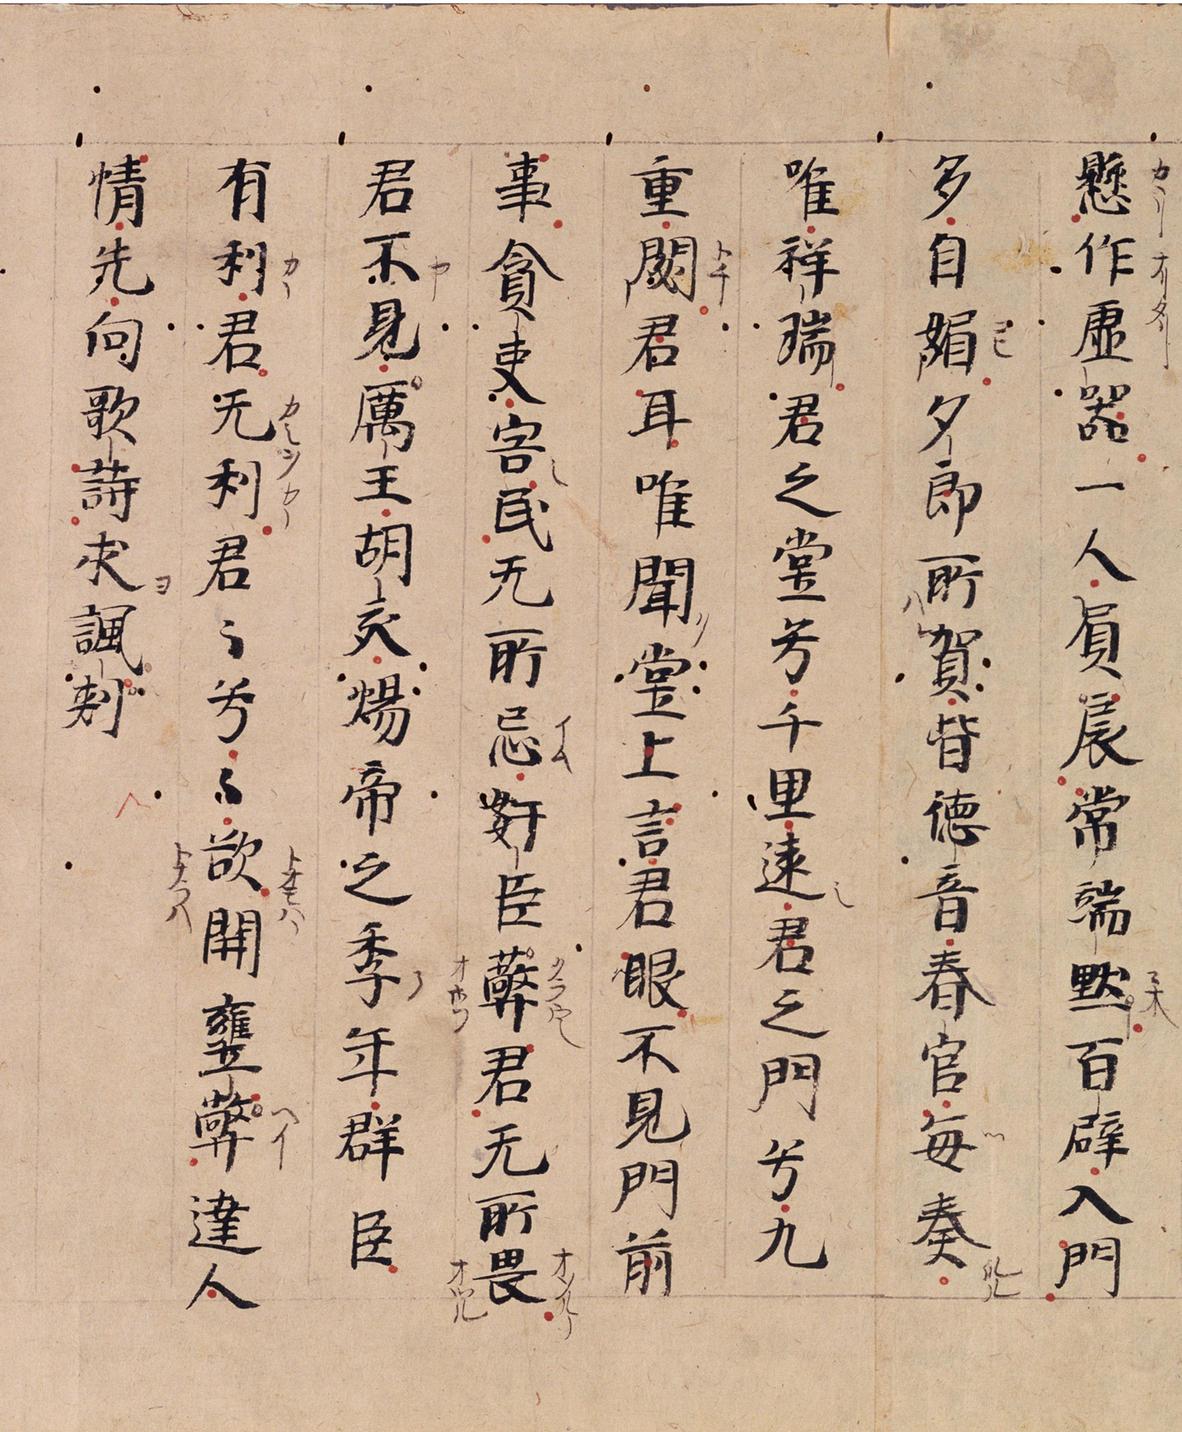 懸作虛器一人負扆常端默百辟入門
多自媚夕郎所賀皆德音春官每奏
唯祥瑞君之堂兮千里遠君之門兮九
重閟君耳唯聞堂上言君眼不見門前
事貪吏害民无所忌姧臣蔽君无所畏
君不見厲王胡亥煬帝之季年群臣
有利君无利君々兮々欲開壅蔽達人
情先向歌詩求諷刺